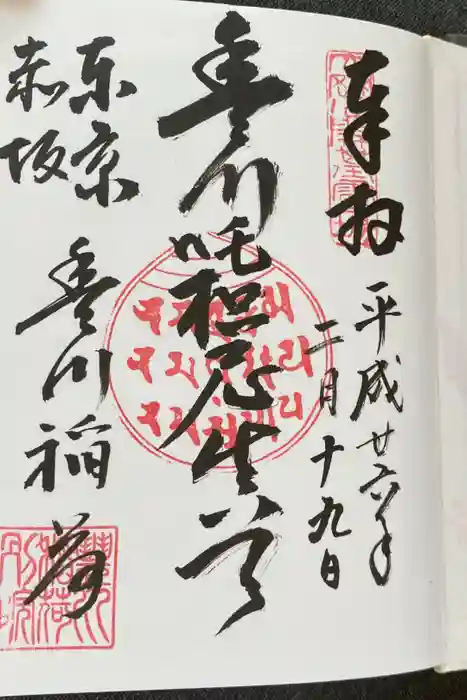 奉拝
平成廿六年
二月十九日
豊川吒枳尼真天
東京
赤坂
豊川稲荷